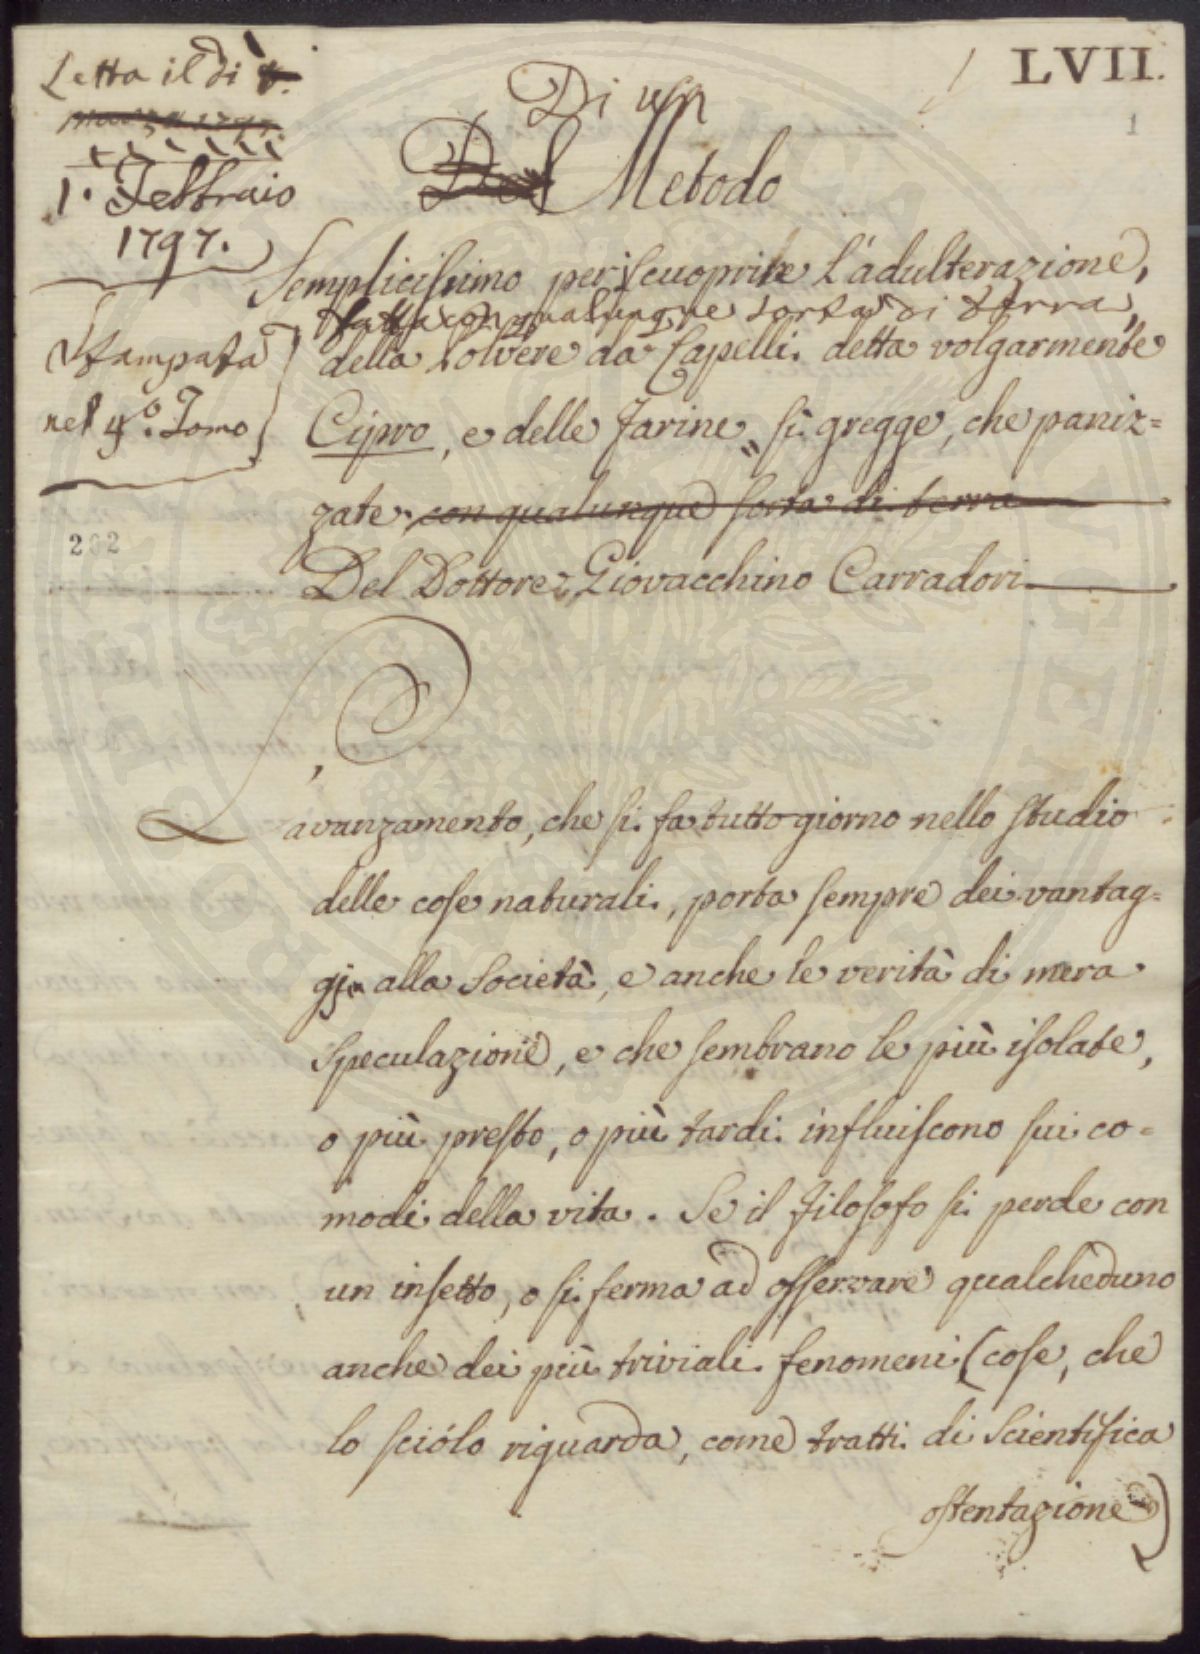 LVII.
1
Letta il dì
1. Febbraio
1797.
Stampata
nel 4.o Tomo
202
Di un
Del Metodo
Semplicissimo per iscuoprire l'adulterazione,
fatta con qualunque sorta di terra,
della Polvere da Capelli detta volgarmente
Cipro, e delle Farine, sì gregge, che paniz=
zate con qualunque sorta di terra
Del Dottore Giovacchino Carradori
L'avanzamento, che si fa tutto giorno nello studio
delle cose naturali, porta sempre dei vantag=
gj alla Società, e anche le verità di mera
speculazione, e che sembrano le più isolate,
o più presto, o più tardi influiscono sui co=
modi della vita. Se il Filosofo si perde con
un insetto, o si ferma ad osservare qualcheduno
anche dei più triviali fenomeni (cose, che
lo sciólo riguarda, come tratti di scientifica
ostentazione)